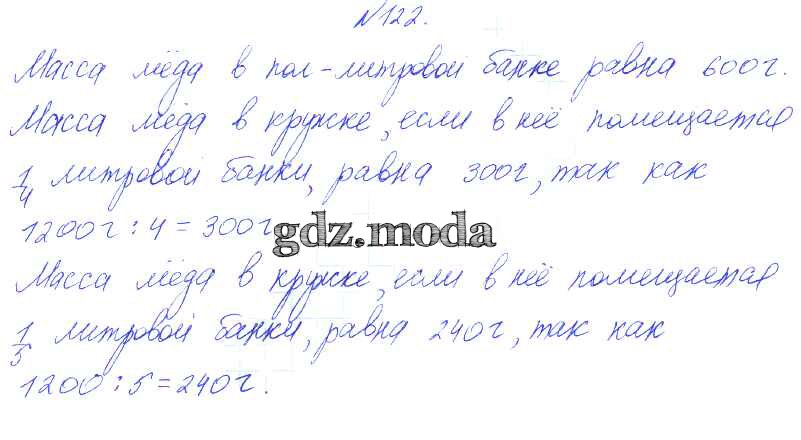 №122.
Масса мёда в пол-литровой банке равна 600г.
Масса мёда в кружке, если в неё помещается
1/4 литровой банки, равна 300г, так как
1200г : 4 = 300г
gdz.moda
Масса мёда в кружке, если в неё помещается
1/5 литровой банки, равна 240г, так как
1200 : 5 = 240г.